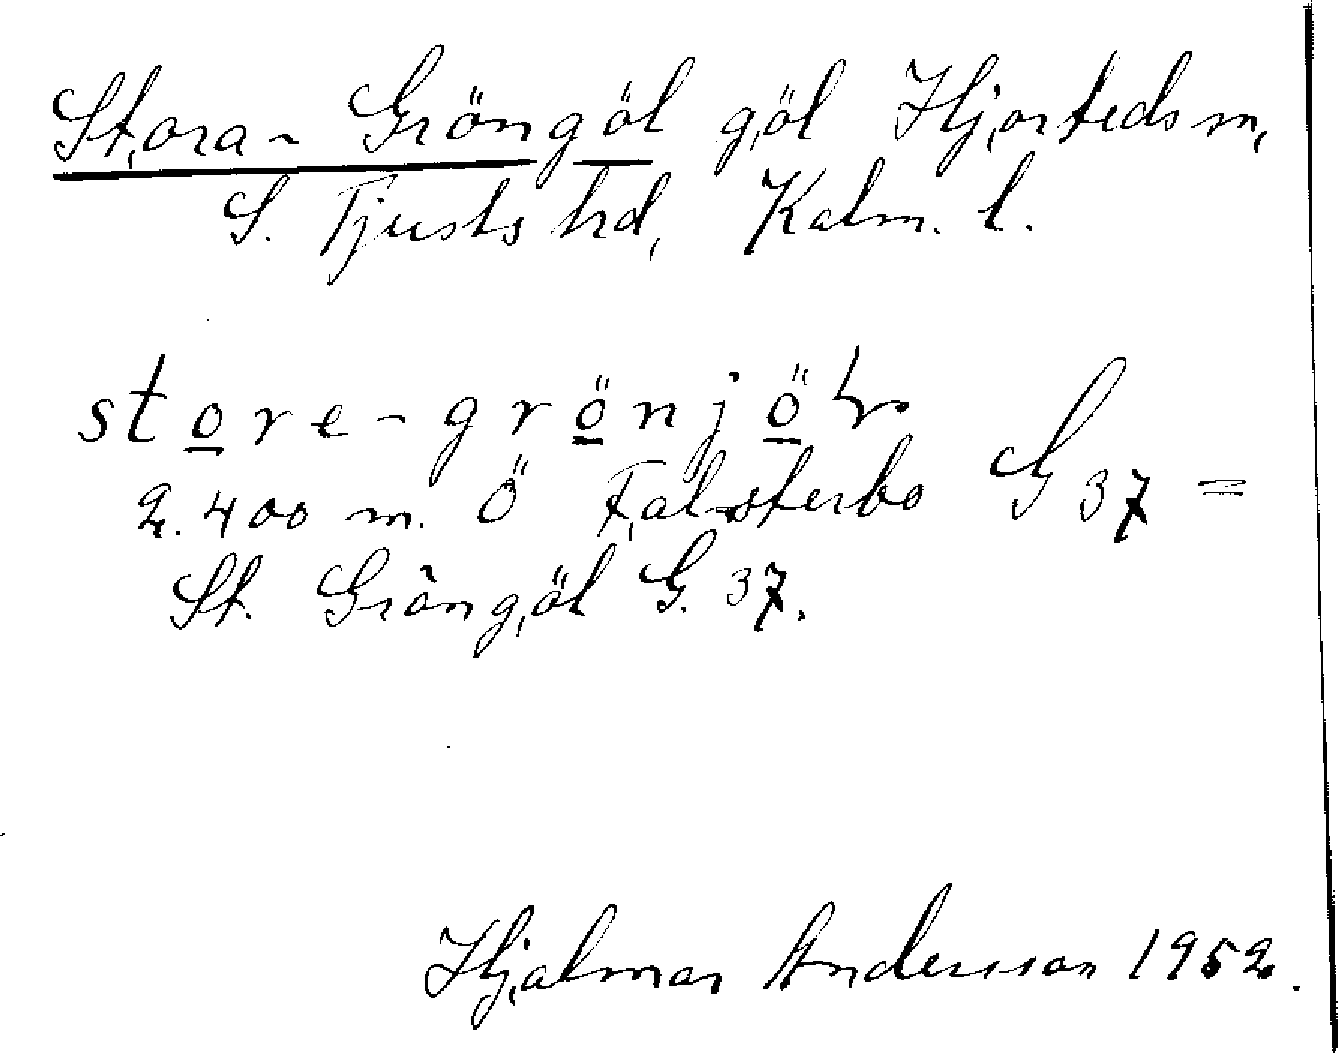 Stora-Gröngöl göl Hjorteds sn,
S. Tjusts hd, Kalm. l.
store-grönjöl
2.400 m. Ö Falsterbo G 37 =
St. Gröngöl G. 37.
Hjalmar Andersson 1952.